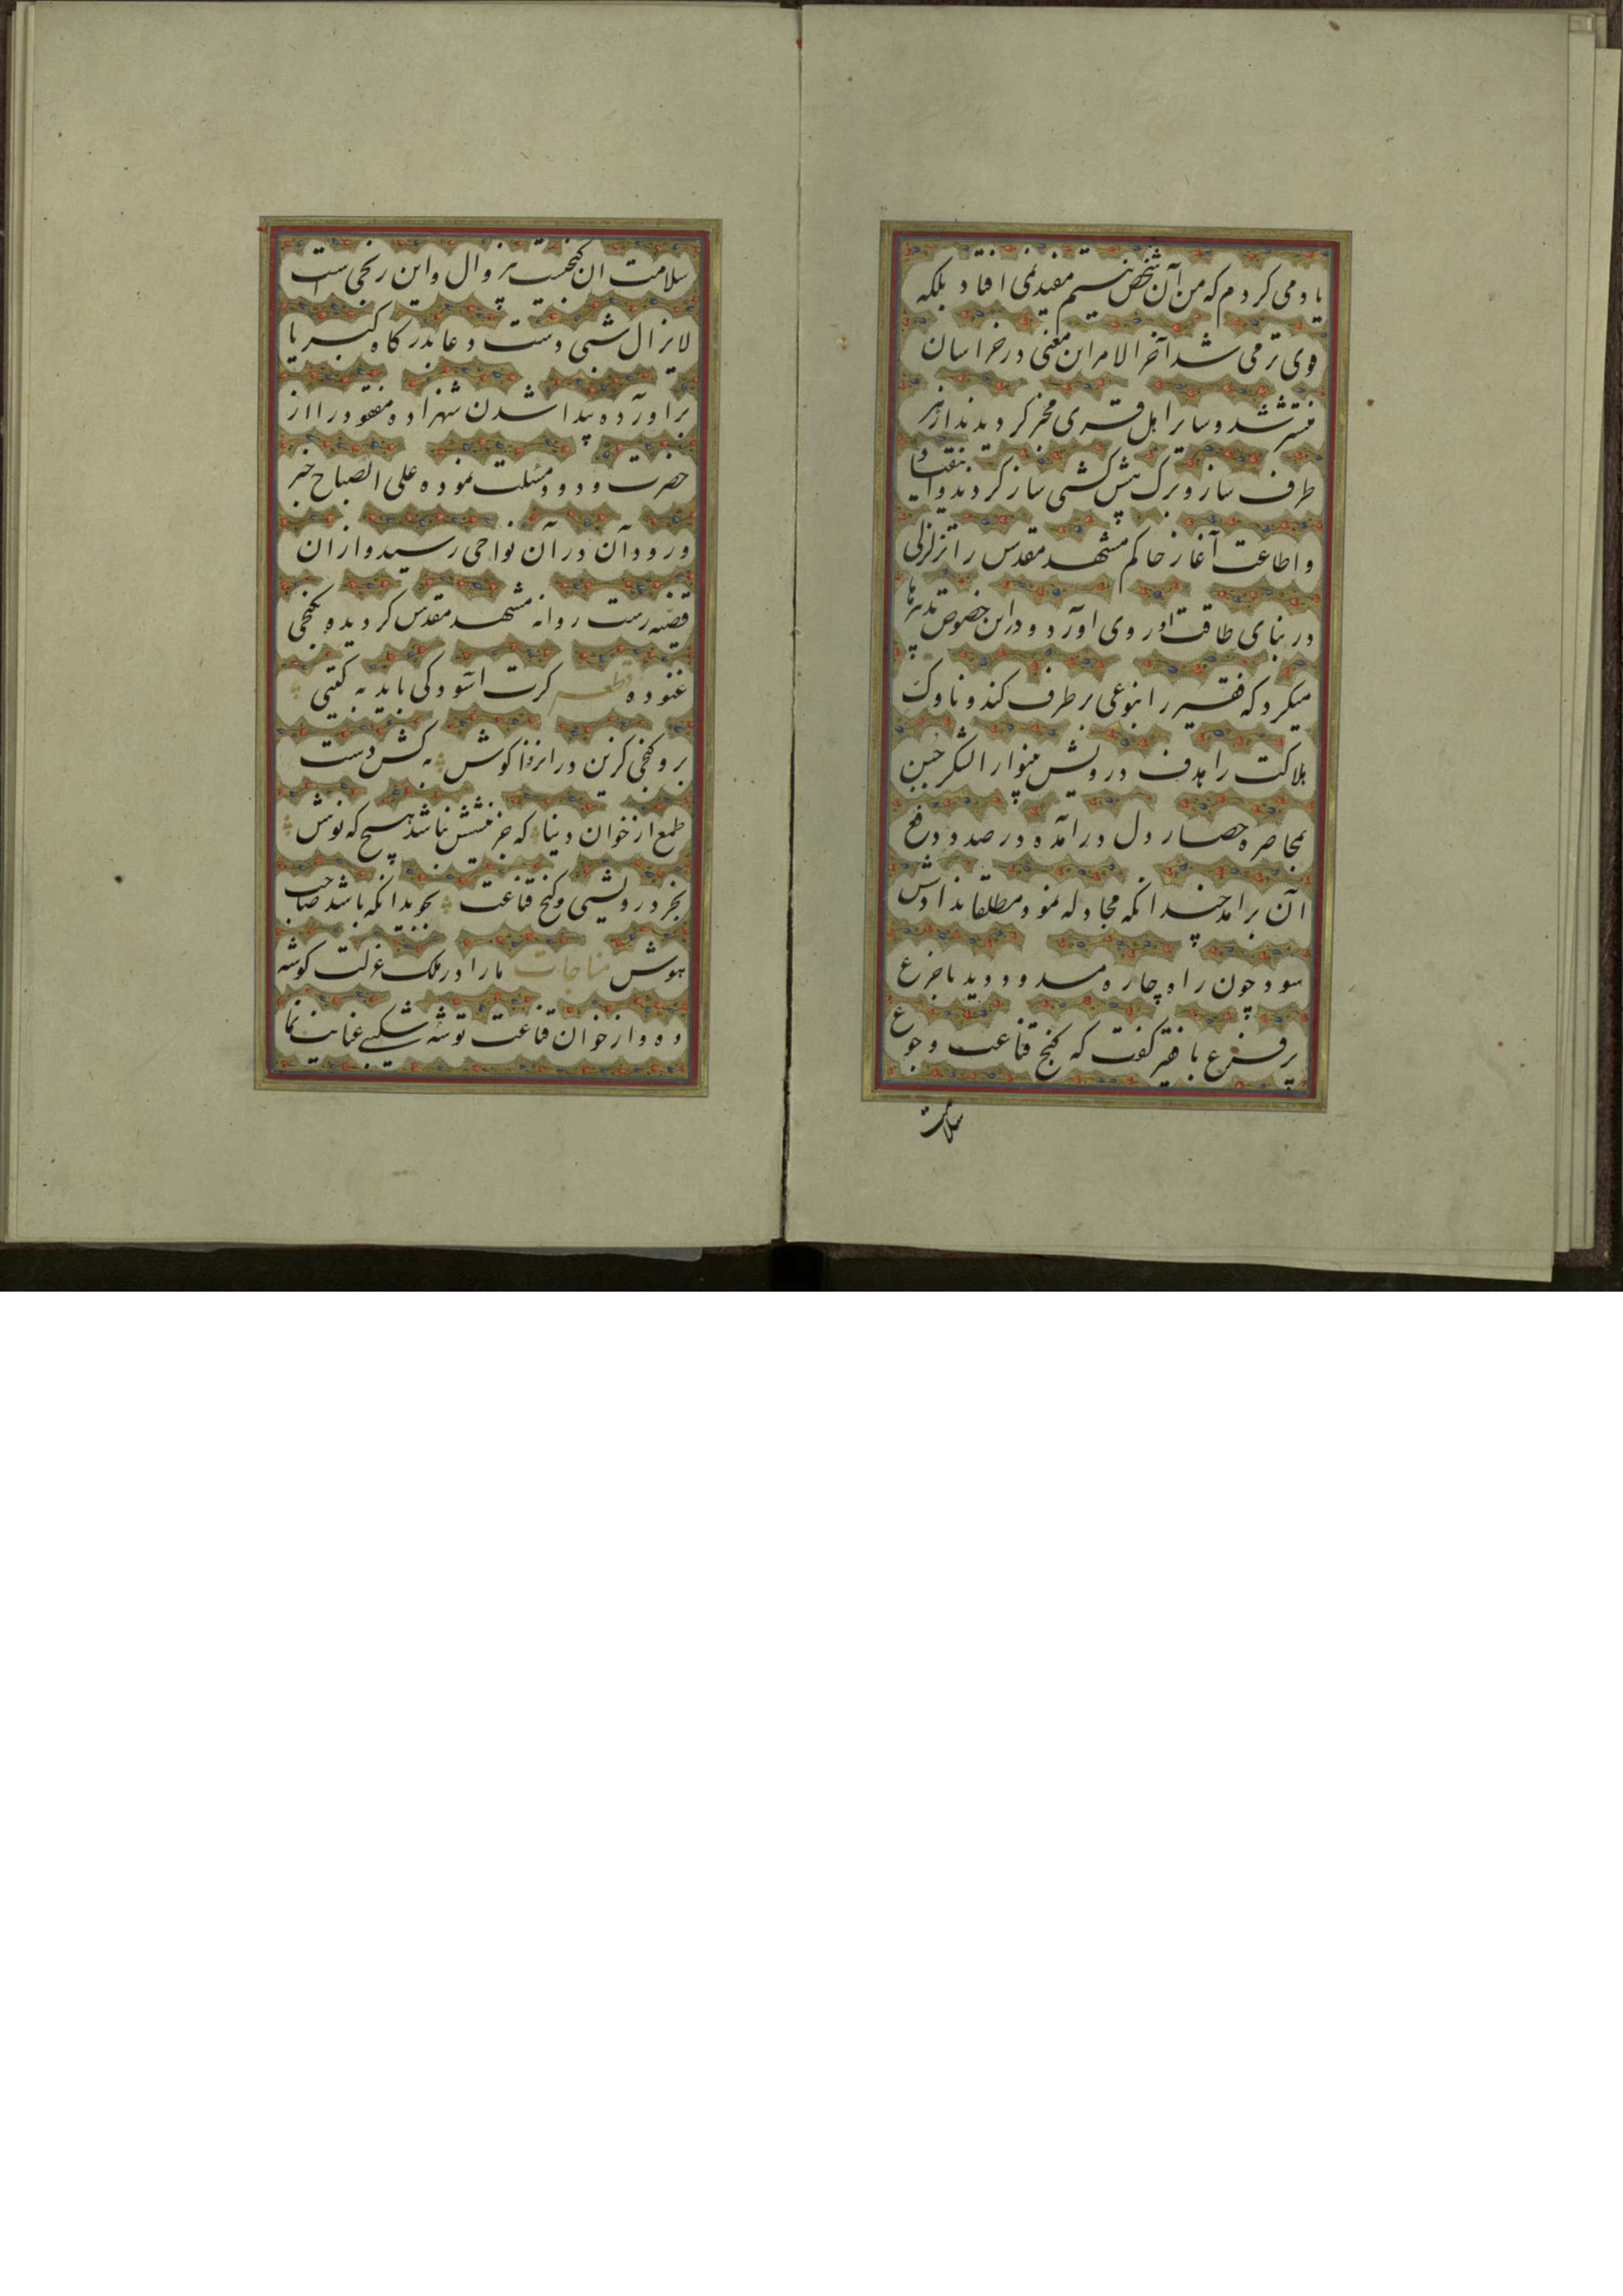 یاد می کردم که من آن شخص نیستم مفید نمی افتاد بلکه
قوی تر می شد آخر الامر این معنی در خراسان
منتشر شد و سایر اهل قری مخبر گردیدند از هر
طرف ساز و برک پیش کشی ساز کردند و انقیاد
و اطاعت آغاز حاکم مشهد مقدس را تزلزلی
در بنای طاقت او روی اورد و در این خصوص تدبیرها
میکرد که فقیر را بنوعی برطرف کند و ناوک
هلاکت را هدف درویش بینوا را لشکر حُبن
بمحاصره حصار دل درآمده در صدد دفع
آن برامد چندانکه مجادله نمود مطلقا نداد‌ش
سود چون راه چاره مسدود دید با جزع
پر فزع با فقیر کفت که کنج قناعت و جوع
سلامت
سلامت ان کنجیست بزوال و این رنجی است
لایزال شبی دست دعا بدرکاه کبریا
براورده پیدا شدن شهزاده مفقود را از
حضرت ودود مسئلت نموده علی الصباح خبر
ورود آن در آن نواحی رسید و از ان
قضیه رست روانه مشهد مقدس کردیده بکنجی
غنوده قطعه کرت اسودکی باید به کیتی
برو کنجی کزین در انزوا کوش به کش دست
طمع از خوان دنیا که جز نیشش نباشد هیچ که نوش
بجز درویشی و کنج قناعت نجوید انکه باشد صاحب
هوش مناجات ما را در ملک عزلت کوشه
ده و از خوان قناعت توشه شکیبی عنایت نما